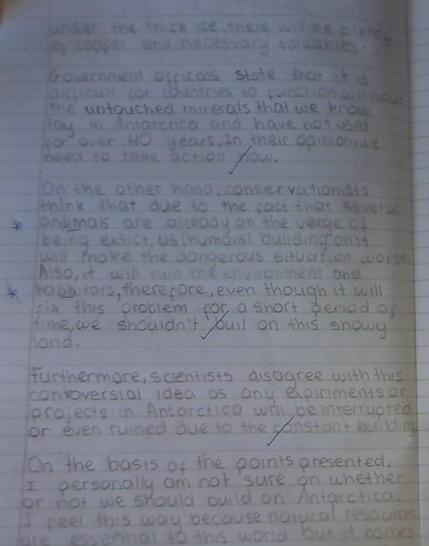 under the thick ice, there will be plenty
of copper and necessary valuables.
Government officals state that it is
difficult for countries to function without
the untouched minerals that we know
lay in Antarctica and have not used
for over 40 years. In their opinion we
need to take action now.
On the other hand, conservationists
think that due to the fact that several
* animals are already on the verge of
being extict, us (humans) building on it
will make the dangerous situation worse.
Also, it will ruin the environment and
* habbitats, therefore, even though it will
fix this problem for a short period of
time, we shouldn't buil on this snowy
land.
Furthermore, scientists disagree with this
controversial idea as any expiriments or
projects in Antarctica will be interrupted
or even ruined due to the constant building.
On the basis of the points presented,
I personally am not sure on whether
or not we should build on Antarctica.
I feel this way because natural resources
are essential to this world but it comes